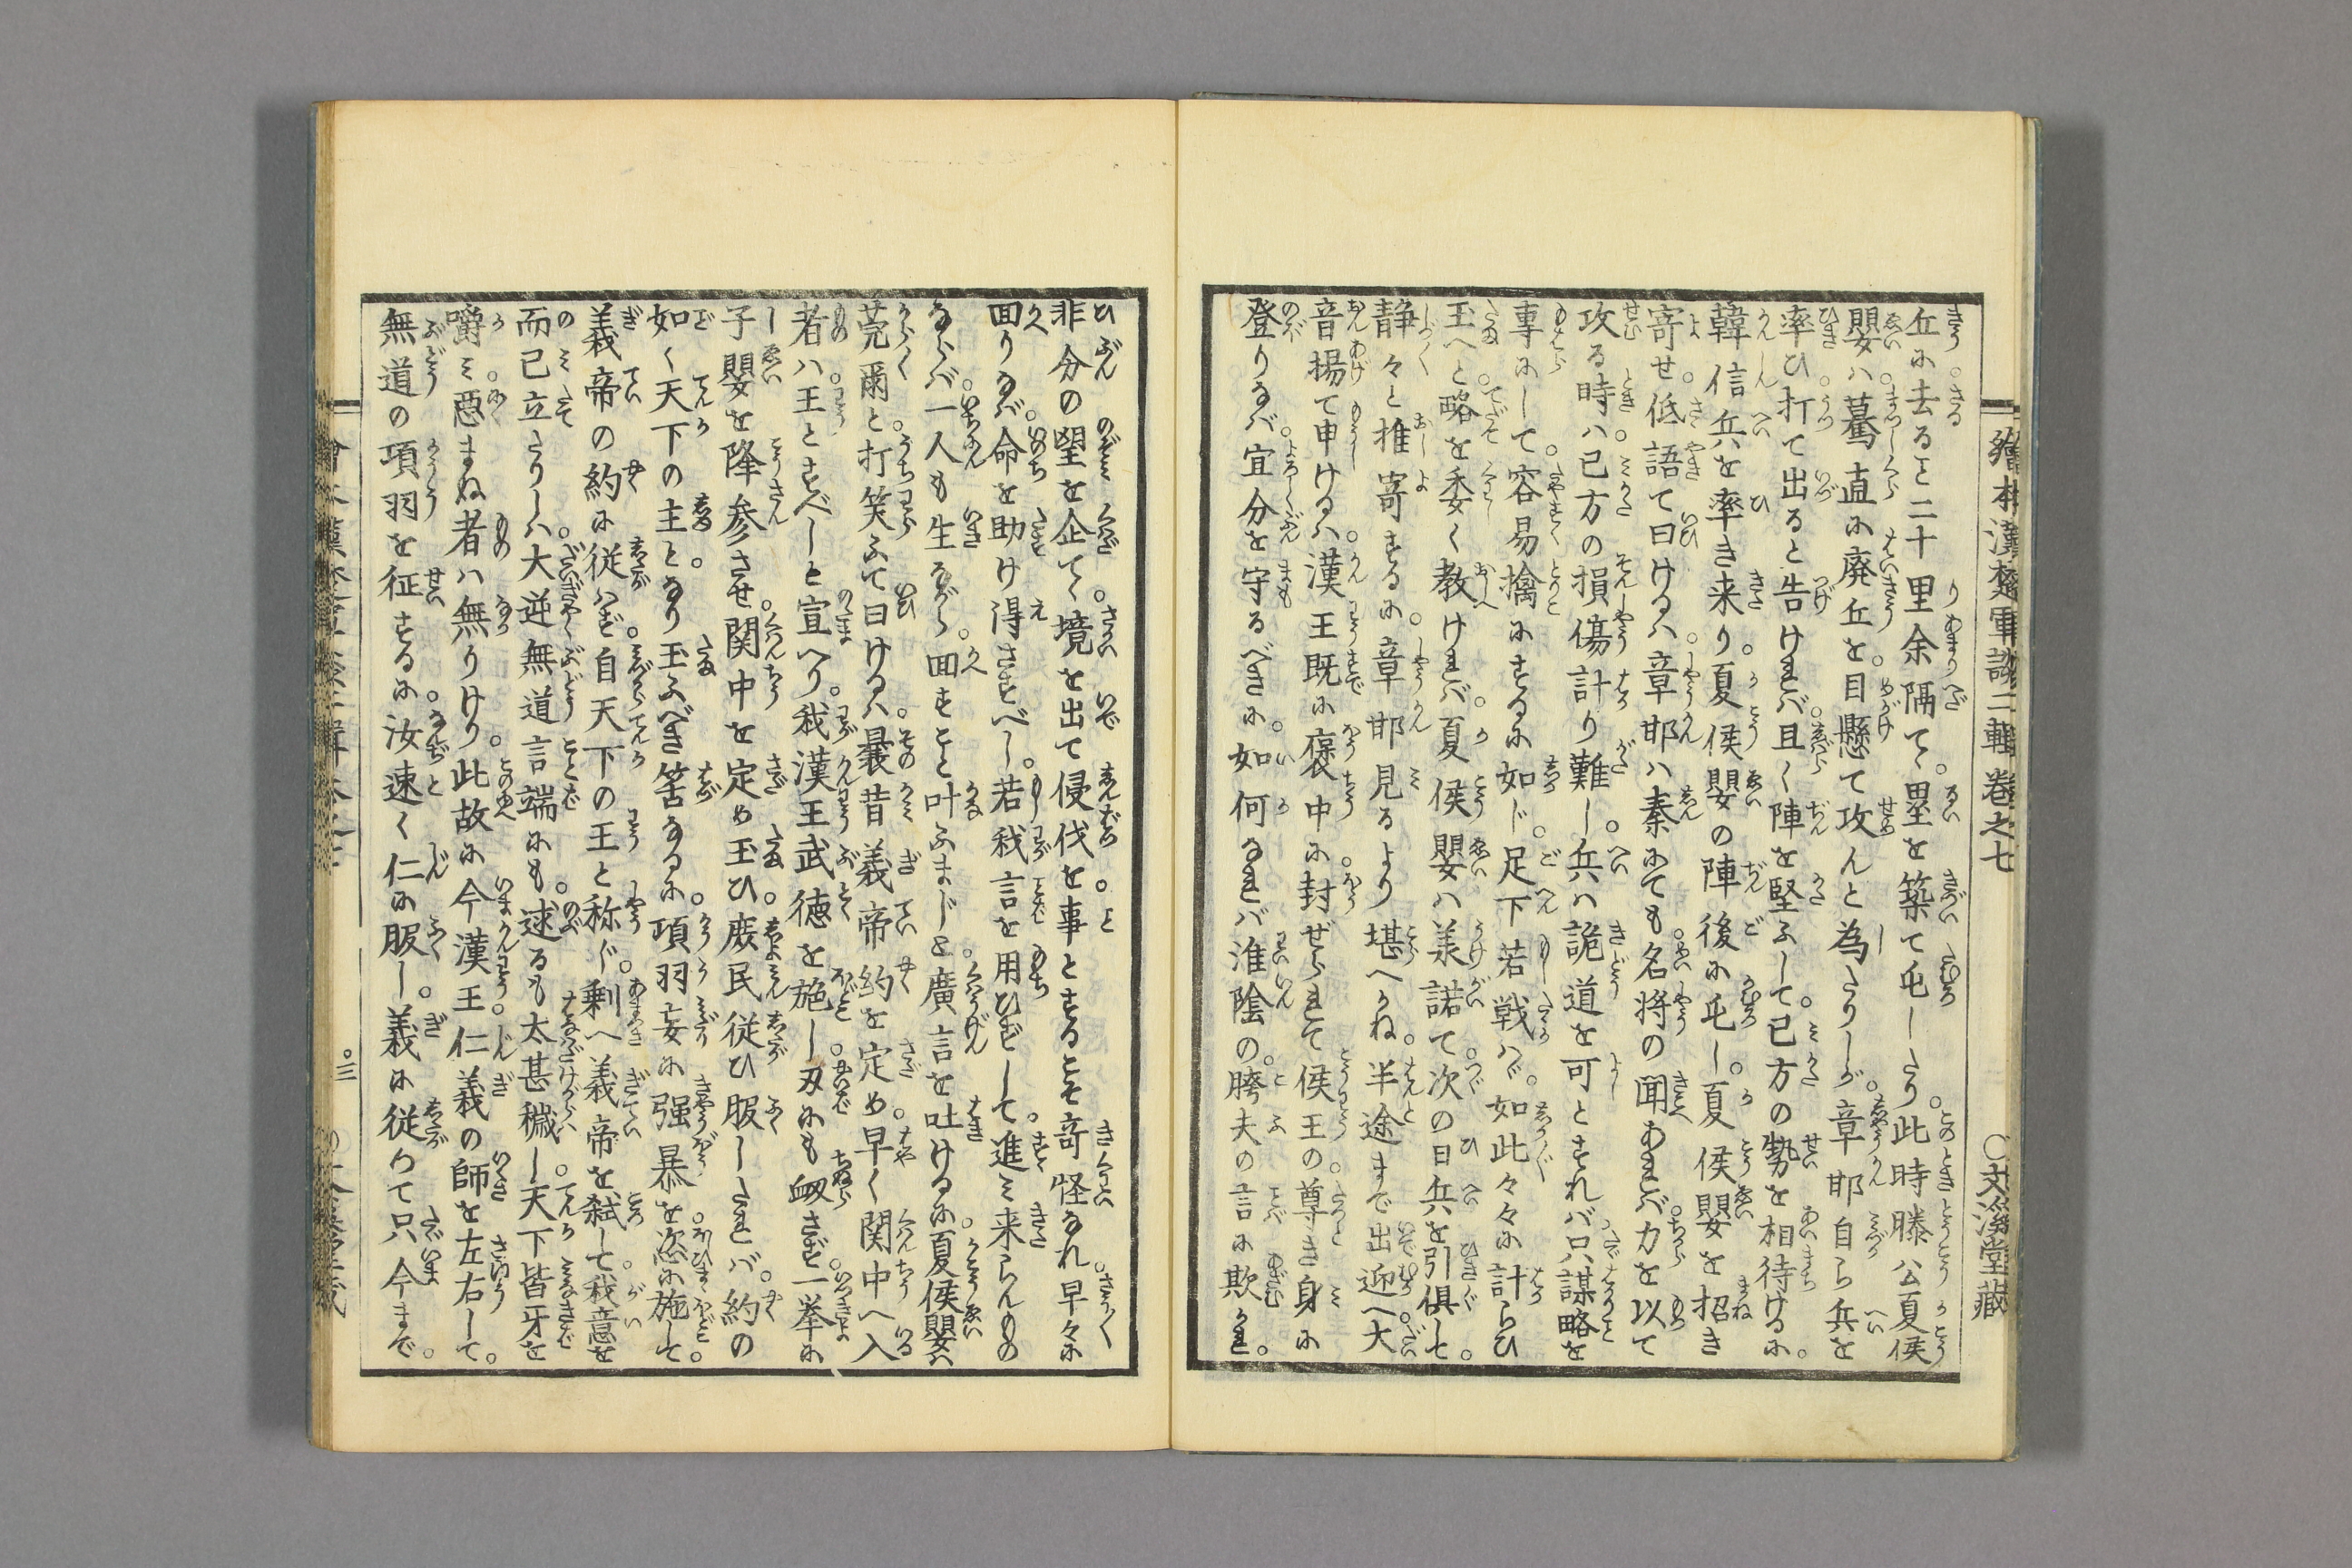 繪本漢楚軍談二輯 巻之七 〇文溪堂藏
丘に去ると二十里余隔て。塁を築て屯したり。此時滕公夏侯
嬰は。驀直に廃丘を。目懸て攻んと為たりしが。章邯自ら兵を
率ひ。打て出ると告ければ。且く陣を堅ふして。己方の勢を相待けるに。
韓信兵を率き来り。夏侯嬰の陣後に屯し。夏侯嬰を招き
寄せ。低語て曰けるは。章邯は秦にても。名将の聞あれば。力を以て
攻る時は。己方の損傷計り難し。兵は詭道を可とすれば。只謀略を
専にして。容易擒にするに如じ。足下若戦はゞ。如此々々に計らひ
玉へと。略を委く教ければ。夏侯嬰は羕諾て。次の日兵を引倶して。
静々と推寄するに。章邯見るより堪へかね。半途まで出迎へ。大
音揚て申けるは。漢王既に褒中に。封ぜられて侯王の。尊き身に
登りなば。宜分を守るべきに。如何なれば淮陰の。胯夫の言に欺かれ。
非分の望を企て。境を出て侵伐を。事とするこそ奇怪なれ。早々に
回りなば。命を助け得さすべし。若我言を用ひずして。進み来らんもの
ならば。一人も生ながら。回すこと叶ふまじと。廣言を吐けるに。夏侯嬰は
莞爾と。打笑ふて曰けるは。曩昔義帝約を定め。早く関中へ入
者は。王とすべしと宣へり。我漢王武徳を施し。刃にも衂さず。一挙に
子嬰を降参させ。関中を定め玉ひ。庶民従ひ服したれば。約の
如く天下の主と。なり玉ふべき筈なるに。項羽妄に强暴を。恣に施して。
義帝の約に従はず。自天下の王と称じ。剰へ義帝を弑して。我意を
而已立たりしは。大逆無道言端にも。逑るも太甚穢し。天下皆牙を
嚼み。惡まぬ者は無りけり。此故に今漢王。仁義の師を左右して。
無道の項羽を征するに。汝速く仁に服し。義に従りて只今まで。
三